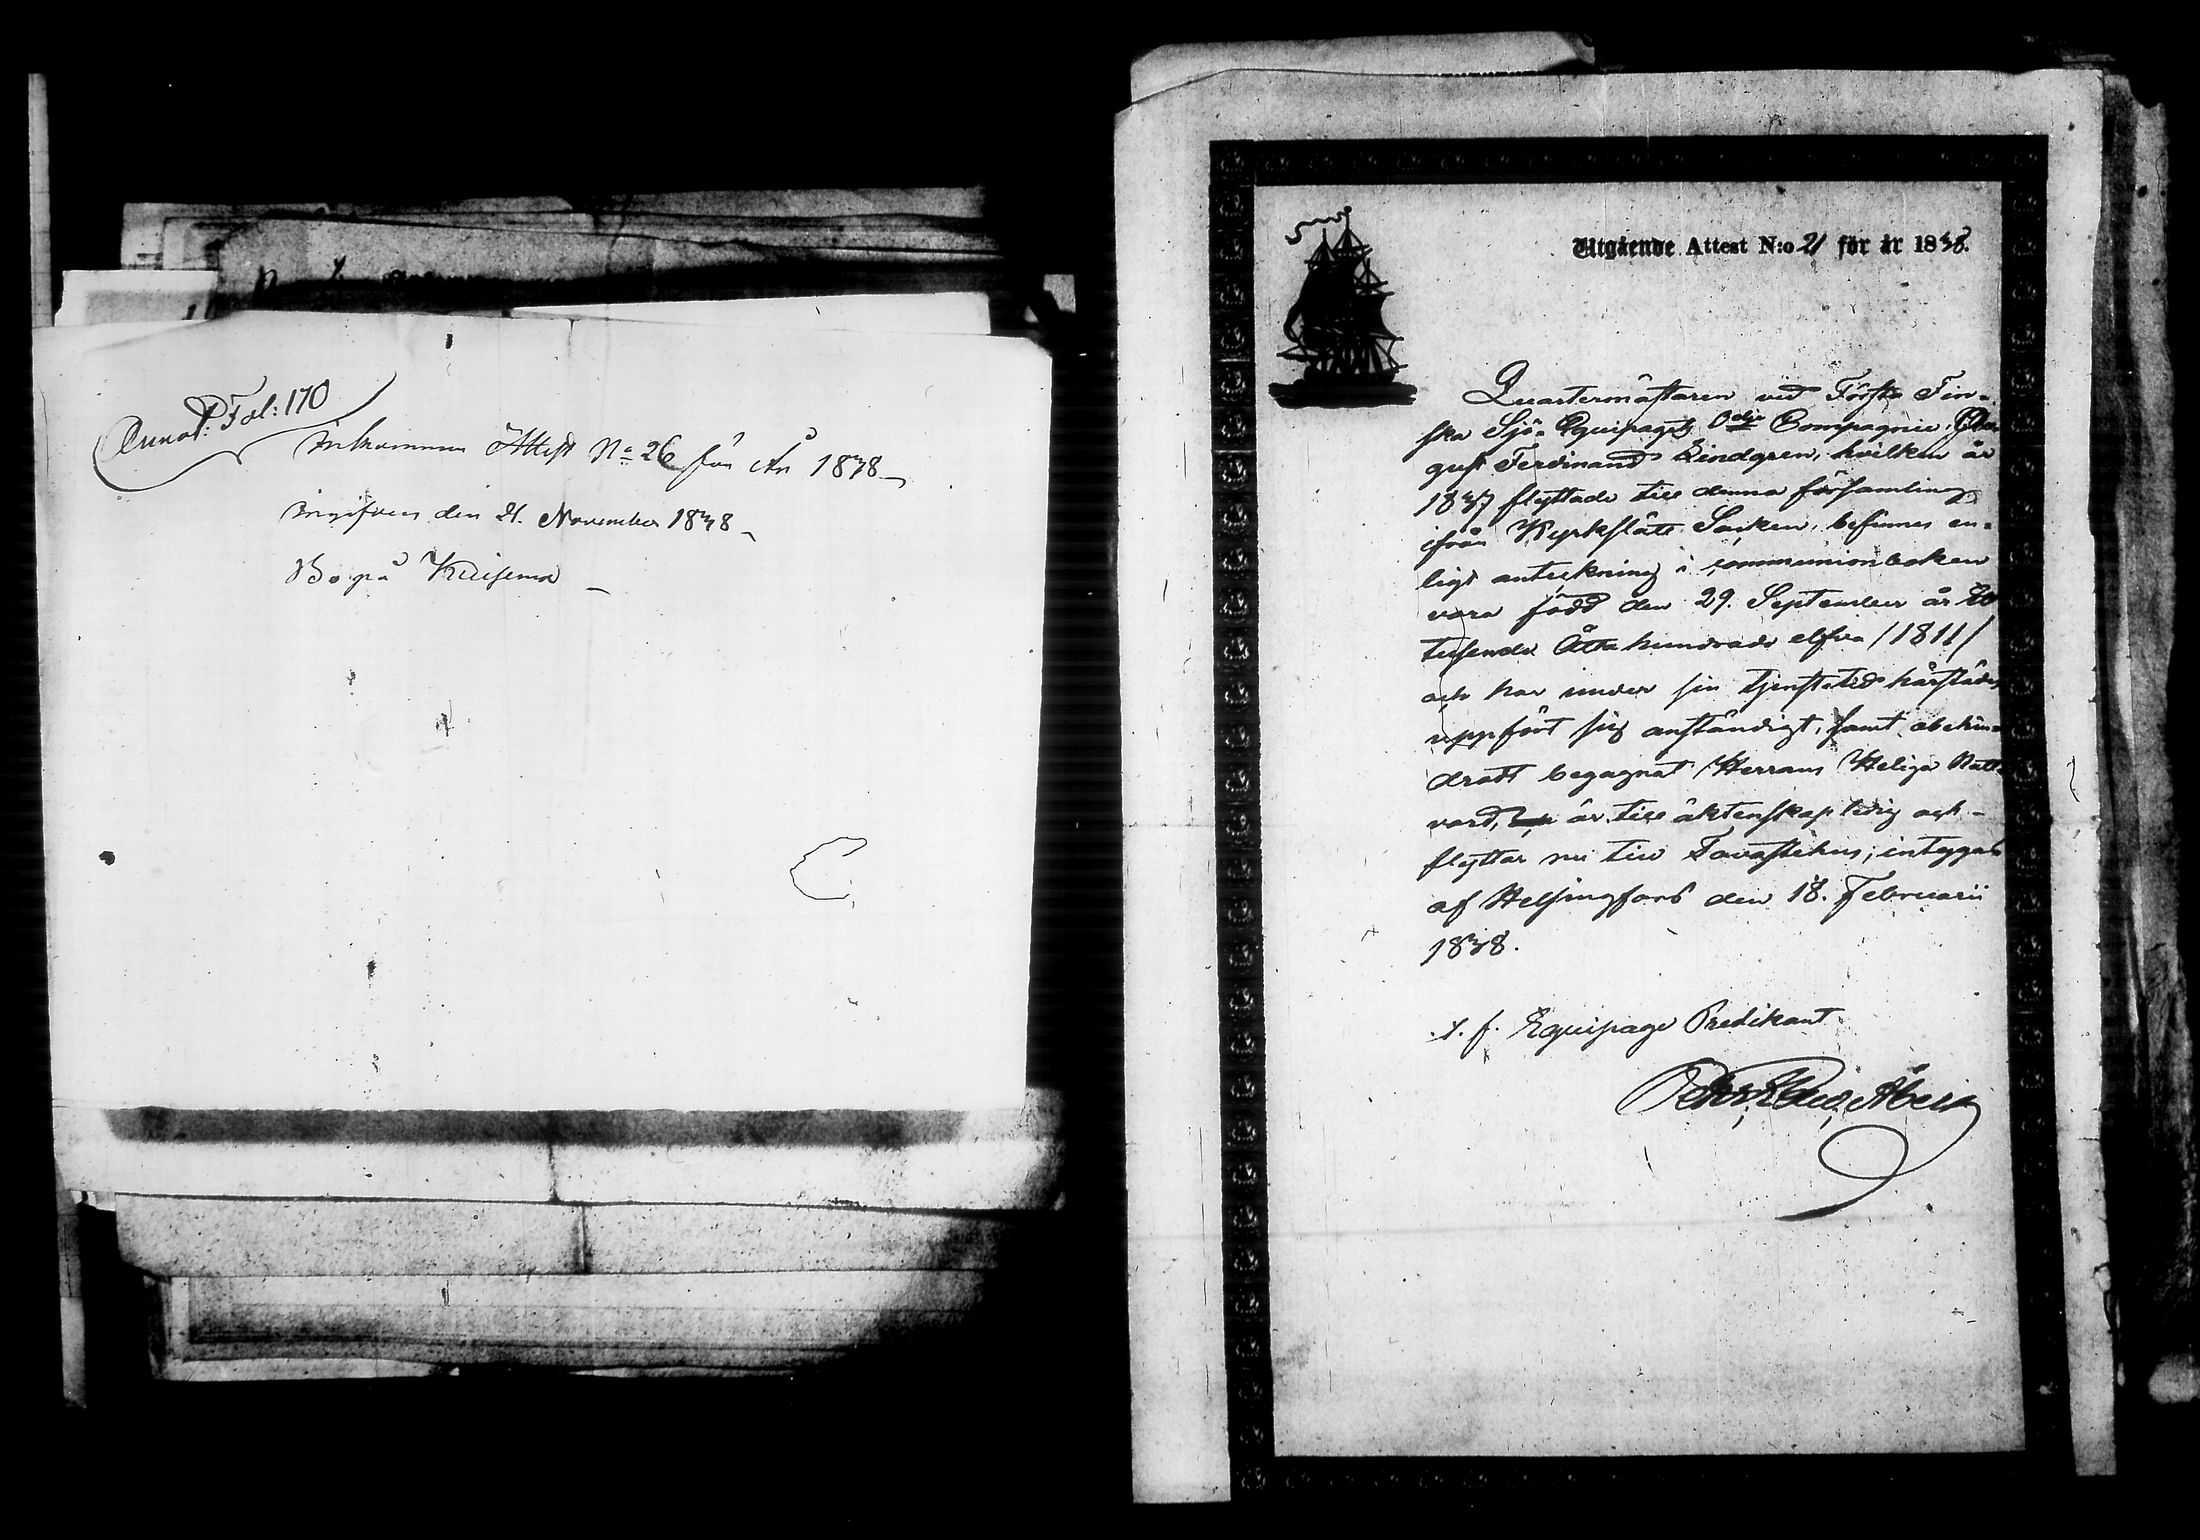 Annot: P. Fol: 170
Inkommen Attest No 26 för År 1838
Ingifven den 21. November 1838
Bo på
Utgående Attest N:o 21 för år 1838.
Quartermästaren vid Första Fin-
ska Sjö-Equipagets Compagnie, Au-
gust Ferdinand Lindgren, hvilken år
1837 flyttade till denna församling
ifrån Kyrkslätt Socken, befinnes en-
ligt anteckning i communionboken
vara född den 29. September år Et
tusende Åtta hundrade elfva /1811/
och har under sin tjenstetid härstädes
uppfört sig anständigt, samt obehin-
dradt begagnat Herrans Heliga Natt-
vard, är till äktenskap ledig och
flyttar nu till Tavastehus; intygas
af Helsingfors den 18. Februarii
1838.
t. f. Equipage Predikant